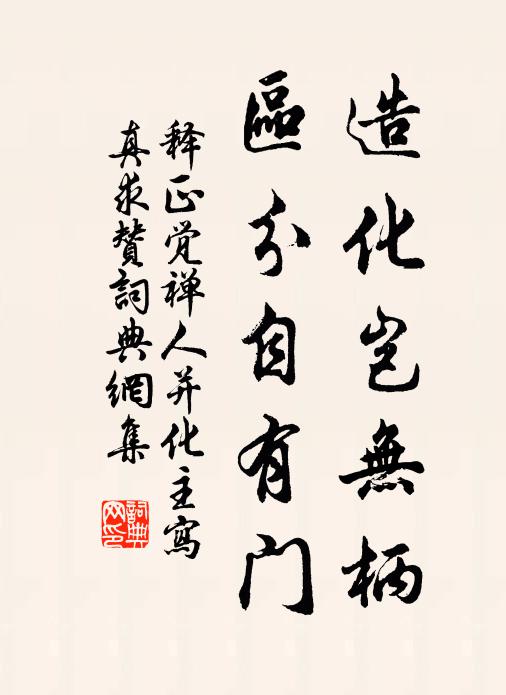 造化岂無柄
區分自有门
释正觉禅人并化主寫
真求赞詞典網集
詞典网印